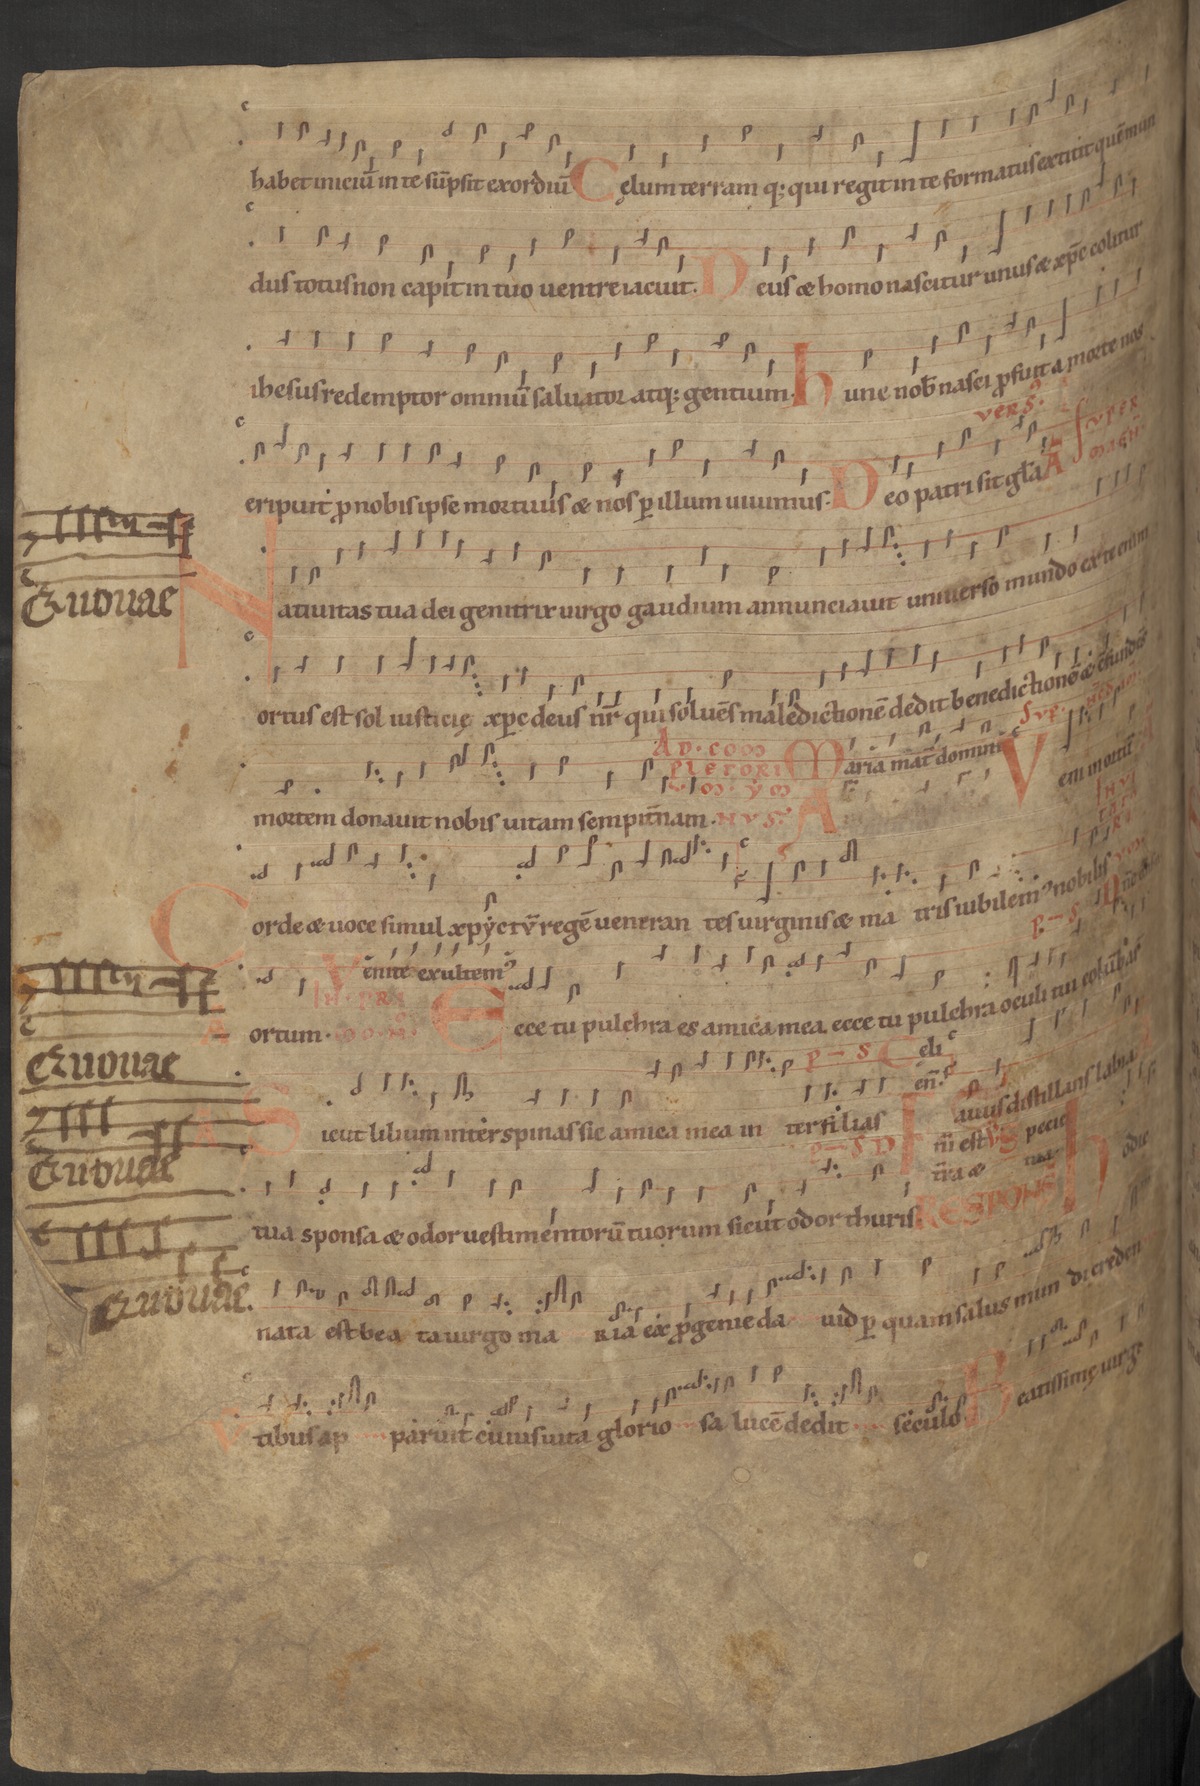 habet iniciū in te sūpsit exordiū Cęlum terram q; qui regit in te formatus extitit quē mun
dus totus non capit in tuo uentre iacuit. Deus & homo nascitur unus & xp̄c colitur
ihesus redemptor omniū saluator atq; gentium. hunc nob̄ nasci ꝓfuit a morte nos
vers.
eripuit ꝓ nobis ipse mortuus & nos ꝑ illum uiuimus. Deo patri sit gl̄a A super magn̄
Euouae
Natiuitas tua dei genitrix uirgo gaudium annunciauit uniuerso mundo ex te enim
ortus est sol iusticię xp̄c deus nr̄ qui soluēs maledictionē dedit benedictionē &
Ad com pletori ym nus Maria mat̄ domini Sup.
mortem donauit nobis uitam sempit̄nam. A
Corde & uoce simul xpȳ ctȳ regē ueneran tes uirginis & ma tris iubilem᷒ nobilis
Venite exultem᷒
ortum. Ecce tu pulchra es amica mea ecce tu pulchra oculi tui colūbar̄
Euouae
p s Celi
en̄.
Sicut lilium inter spinas sic amica mea in ter filias Fauus distillans labia
n̄i est specie
tua
Euouae
tua sponsa & odor uestimentorū tuorum sicut odor thuris RESPONS hodie
Euouae.
nata est bea ta uirgo ma ria ex ꝓgenie da uid ꝑ quam salus mun di creden
tibus ap paruit cuius uita glorio sa lucē dedit sēculo Beatissimę uirgi